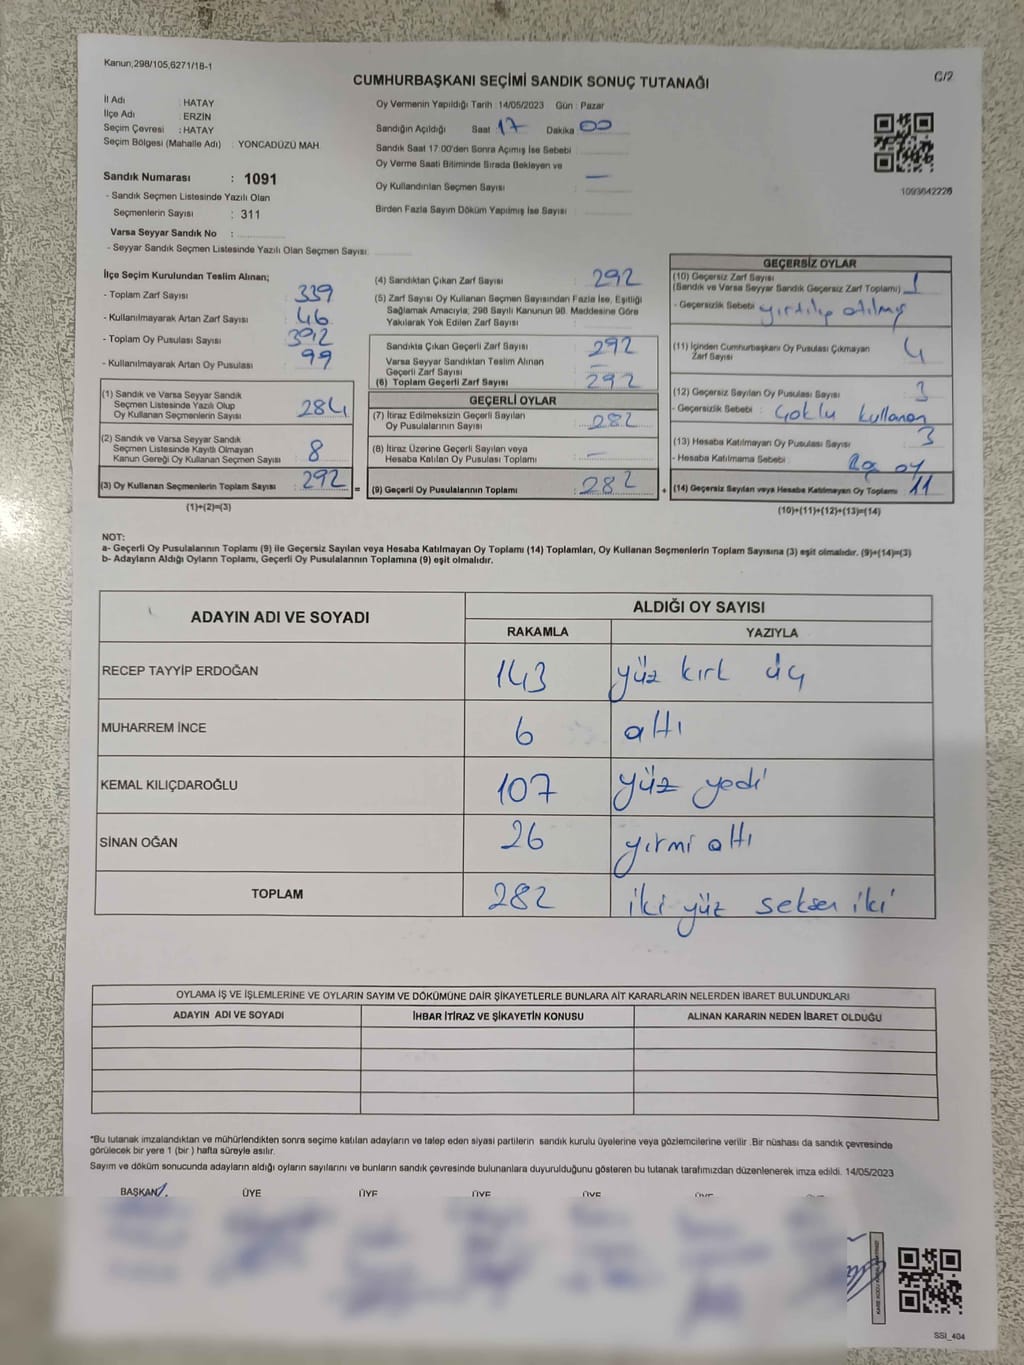 Kanun,298/105,6271/18-1
CUMHURBAŞKANI SEÇİMİ SANDIK SONUÇ TUTANAĞI
C/2
İl Adı : HATAY
İlçe Adı : ERZİN
Seçim Çevresi : HATAY
Seçim Bölgesi (Mahalle Adı) : YONCADÜZÜ MAH.
Oy Vermenin Yapıldığı Tarih : 14/05/2023 Gün : Pazar
Sandığın Açıldığı Saat 17 Dakika 00
Sandık Saat 17:00'den Sonra Açımış İse Sebebi :
Oy Verme Saati Bitiminde Sırada Bekleyen ve
Oy Kullandırılan Seçmen Sayısı : —
Birden Fazla Sayım Döküm Yapılmış İse Sayısı :
1093642226
Sandık Numarası : 1091
- Sandık Seçmen Listesinde Yazılı Olan
Seçmenlerin Sayısı : 311
Varsa Seyyar Sandık No :
- Seyyar Sandık Seçmen Listesinde Yazılı Olan Seçmen Sayısı:
İlçe Seçim Kurulundan Teslim Alınan;
- Toplam Zarf Sayısı : 339
- Kullanılmayarak Artan Zarf Sayısı : 46
- Toplam Oy Pusulası Sayısı :
- Kullanılmayarak Artan Oy Pusulası : 99
(1) Sandık ve Varsa Seyyar Sandık
Seçmen Listesinde Yazılı Olup
Oy Kullanan Seçmenlerin Sayısı : 284
(2) Sandık ve Varsa Seyyar Sandık
Seçmen Listesinde Kayıtlı Olmayan
Kanun Gereği Oy Kullanan Seçmen Sayısı : 8
(3) Oy Kullanan Seçmenlerin Toplam Sayısı : 292 =
(1)+(2)=(3)
(4) Sandıktan Çıkan Zarf Sayısı : 292
(5) Zarf Sayısı Oy Kullanan Seçmen Sayısından Fazla İse, Eşitliği
Sağlamak Amacıyla; 298 Sayılı Kanunun 98. Maddesine Göre
Yakılarak Yok Edilen Zarf Sayısı :
Sandıkta Çıkan Geçerli Zarf Sayısı : 292
Varsa Seyyar Sandıktan Teslim Alınan
Geçerli Zarf Sayısı : —
(6) Toplam Geçerli Zarf Sayısı : 292
GEÇERLİ OYLAR
(7) İtiraz Edilmeksizin Geçerli Sayılan
Oy Pusulalarının Sayısı : 282
(8) İtiraz Üzerine Geçerli Sayılan veya
Hesaba Katılan Oy Pusulası Toplamı : —
(9) Geçerli Oy Pusulalarının Toplamı : 282 +
GEÇERSİZ OYLAR
(10) Geçersiz Zarf Sayısı
(Sandık ve Varsa Seyyar Sandık Geçersiz Zarf Toplamı) : 1
- Geçersizlik Sebebi : yırtılıp atılmış
(11) İçinden Cumhurbaşkanı Oy Pusulası Çıkmayan
Zarf Sayısı : 4
(12) Geçersiz Sayılan Oy Pusulası Sayısı : 3
- Geçersizlik Sebebi : Çoklu kullanan
(13) Hesaba Katılmayan Oy Pusulası Sayısı : 3
- Hesaba Katılmama Sebebi : oy
(14) Geçersiz Sayılan veya Hesaba Katılmayan Oy Toplamı : 11
(10)+(11)+(12)+(13)=(14)
NOT:
a- Geçerli Oy Pusulalarının Toplamı (9) ile Geçersiz Sayılan veya Hesaba Katılmayan Oy Toplamı (14) Toplamları, Oy Kullanan Seçmenlerin Toplam Sayısına (3) eşit olmalıdır. (9)+(14)=(3)
b- Adayların Aldığı Oyların Toplamı, Geçerli Oy Pusulalarının Toplamına (9) eşit olmalıdır.
ADAYIN ADI VE SOYADI
ALDIĞI OY SAYISI
RAKAMLA YAZIYLA
RECEP TAYYİP ERDOĞAN 143 yüz kırk üç
MUHARREM İNCE 6 altı
KEMAL KILIÇDAROĞLU 107 yüz yedi
SİNAN OĞAN 26 yirmi altı
TOPLAM 282 iki yüz seksen iki
OYLAMA İŞ VE İŞLEMLERİNE VE OYLARIN SAYIM VE DÖKÜMÜNE DAİR ŞİKAYETLERLE BUNLARA AİT KARARLARIN NELERDEN İBARET BULUNDUKLARI
ADAYIN ADI VE SOYADI İHBAR İTİRAZ VE ŞİKAYETİN KONUSU ALINAN KARARIN NEDEN İBARET OLDUĞU
"Bu tutanak imzalandıktan ve mühürlendikten sonra seçime katılan adayların ve talep eden siyasi partilerin sandık kurulu üyelerine veya gözlemcilerine verilir .Bir nüshası da sandık çevresinde
görülecek bir yere 1 (bir ) hafta süreyle asılır.
Sayım ve döküm sonucunda adayların aldığı oyların sayılarını ve bunların sandık çevresinde bulunanlara duyurulduğunu gösteren bu tutanak tarafımızdan düzenlenerek imza edildi. 14/05/2023
BAŞKAN ÜYE ÜYE ÜYE ÜYE ÜYE
SSI_404